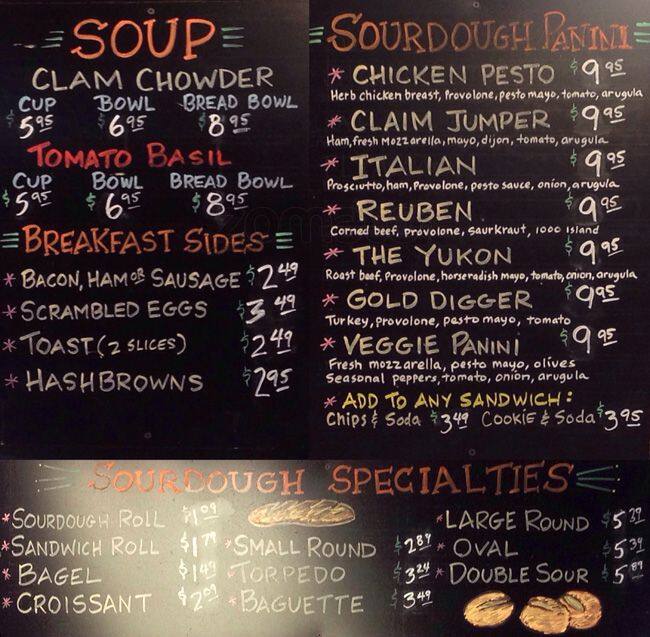 SOUP
CLAM CHOWDER
CUP BOWL BREAD BOWL
$5.95 $6.95 $8.95
TOMATO BASIL
CUP BOWL BREAD BOWL
$5.95 $6.95 $8.95
BREAKFAST SIDES
* BACON, HAM OR SAUSAGE $2.49
* SCRAMBLED EGGS $3.49
* TOAST (2 SLICES) $2.49
* HASHBROWNS $2.95
SOURDOUGH PANINI
* CHICKEN PESTO $9.95
Herb chicken breast, Provolone, pesto mayo, tomato, arugula
* CLAIM JUMPER $9.95
Ham, fresh Mozzarella, mayo, dijon, tomato, arugula
* ITALIAN $9.95
Prosciutto, ham, Provolone, pesto sauce, onion, arugula
* REUBEN $9.95
Corned beef, provolone, saurkraut, 1000 island
* THE YUKON $9.95
Roast beef, Provolone, horseradish mayo, tomato, onion, arugula
* GOLD DIGGER $9.95
Turkey, provolone, pesto mayo, tomato
* VEGGIE PANINI $9.95
Fresh mozzarella, pesto mayo, olives
Seasonal peppers, tomato, onion, arugula
* ADD TO ANY SANDWICH:
Chips & Soda $3.49 Cookie & Soda $3.95
SOURDOUGH SPECIALTIES
* SOURDOUGH ROLL $1.09
* SANDWICH ROLL
* BAGEL $1.49
* CROISSANT
* SMALL ROUND $2.89
* TORPEDO $3.24
* BAGUETTE $3.49
* LARGE ROUND $5.39
* OVAL $5.39
* DOUBLE SOUR $5.89